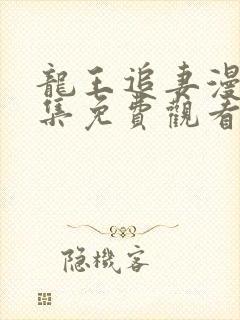 龍王追妻漫
集免費觀看
隐機客